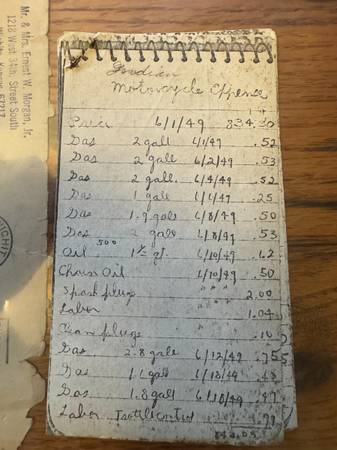 Mr. & Mrs. Ernest W. Morgan, Jr.
1218 West 34th. Street South
Motorcycle Expence
Price 6/1/49 834.50
Gas 2 gall 6/1/49 .52
Gas 2 gall 6/2/49 .53
Gas 2 gall. 6/4/49 .52
Gas 1 gall 6/4/49 .25
Gas 1.9 gall 6/8/49 .50
Gas 2 gall 6/8/49 .53
500
Oil 1 qt. 6/10/49 .62
Chain Oil 6/10/49 .50
Spark plugs " " " 2.00
Labor " " 1.04
Clean plugs " " .10
Gas 2.8 gall 6/12/49 .75
Gas gall
Gas 1.8 gall .47
Labor